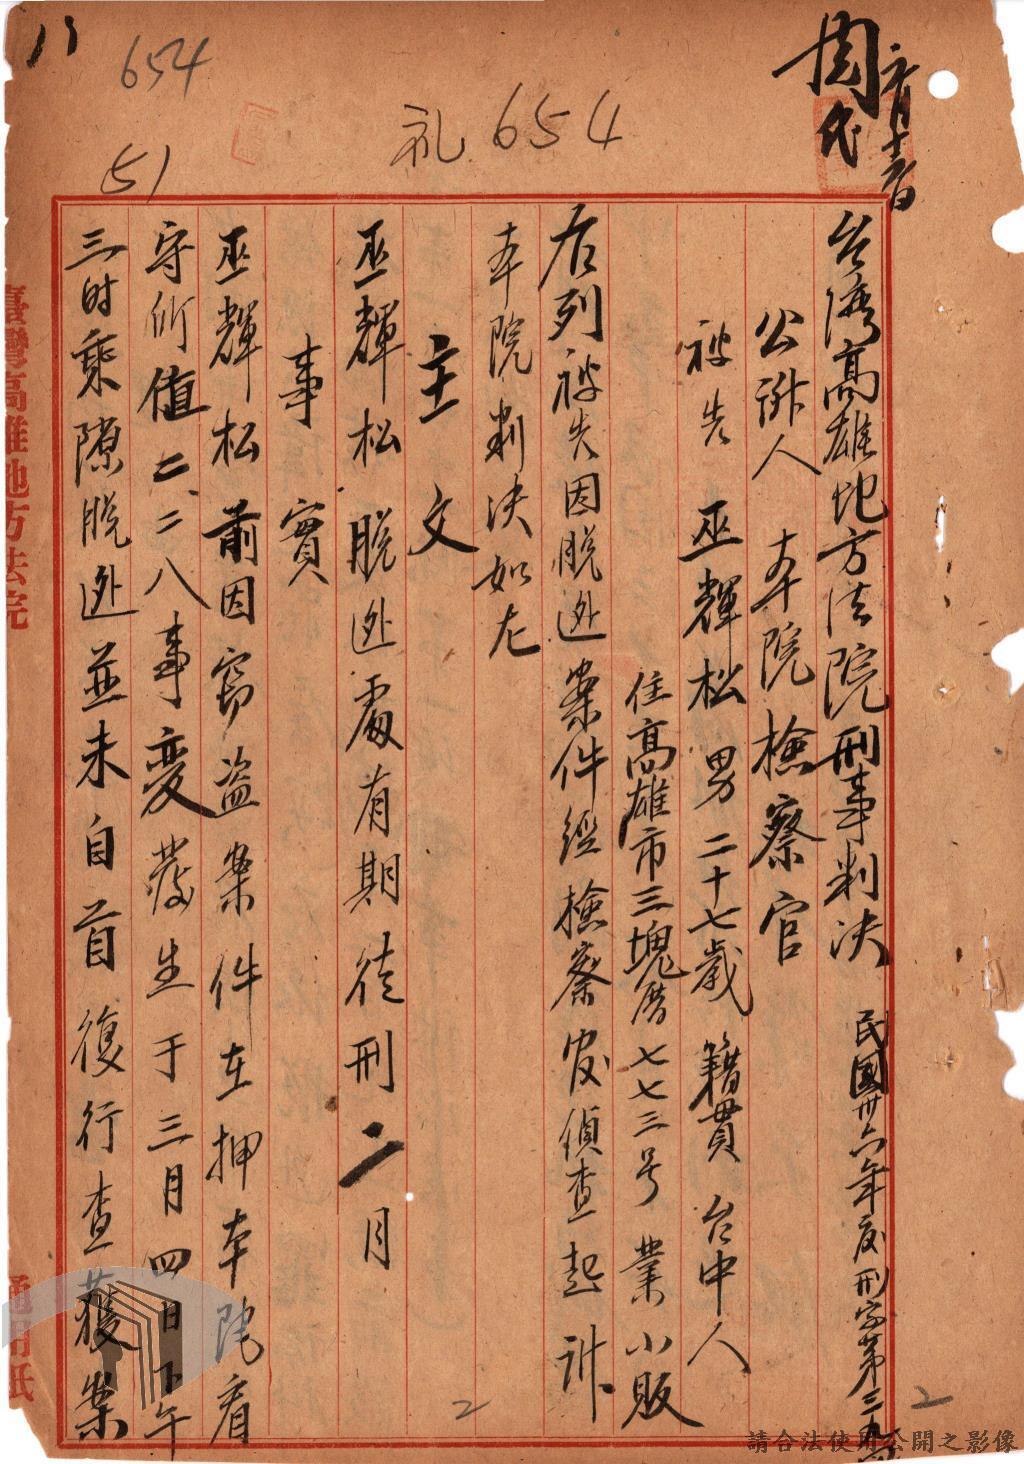 654
礼654
51
周代
台湾高雄地方法院刑事判决 民國卅六年度刑字第三九
公訴人 本院檢察官
被告 巫輝松 男 二十七歲 籍貫 台中人
住高雄市三塊厝七七三号 業小販
右列被告因脫逃案件經檢察官偵查起訴
本院判决如左
主文
巫輝松脫逃處有期徒刑二月
事實
巫輝松前因窃盗案件在押本院看
守所值二、二八事变發生于三月四日下午
三时乘隙脫逃並未自首復行查獲案
臺灣高雄地方法院
通用紙
2
2
請合法使用公開之影像